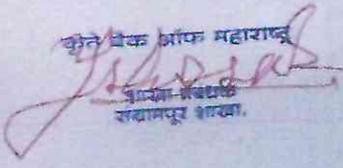 कृते बैंक ऑफ महाराष्ट्र
शाखा प्रबंधक
संग्रामपूर शाखा.